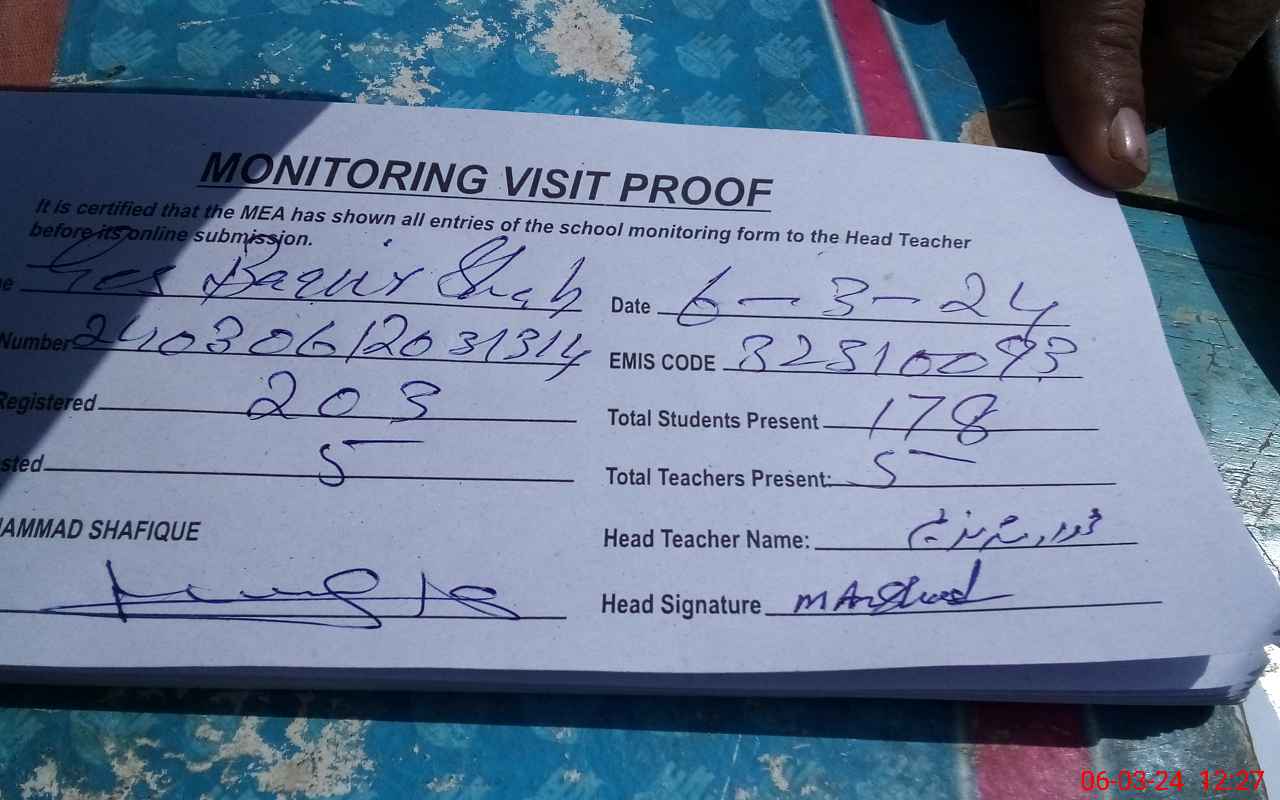 MONITORING VISIT PROOF
It is certified that the MEA has shown all entries of the school monitoring form to the Head Teacher
before its online submission.
e Ges Baqir Shah Date 6-3-24
Number 24030612031314 EMIS CODE 32310093
Registered 203 Total Students Present 178
sted 5 Total Teachers Present: 5
AMMAD SHAFIQUE Head Teacher Name:
Head Signature M Arshad
06-03-24 12:27